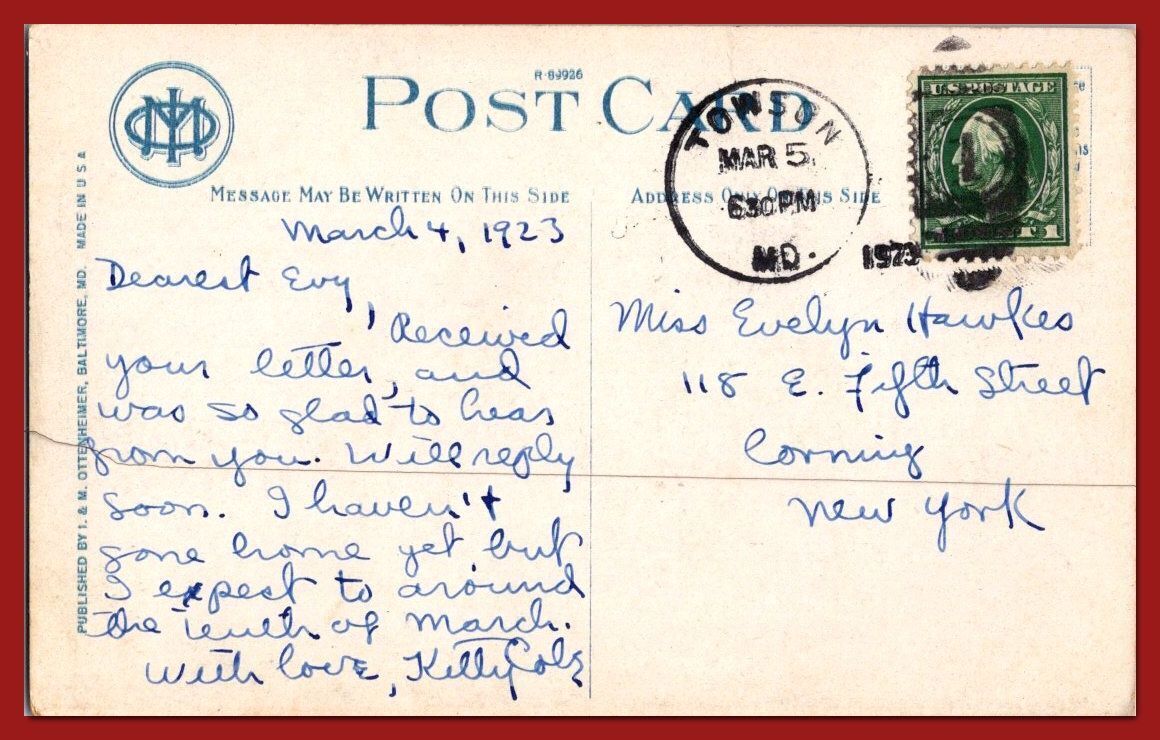 R-89926
POST CARD
MESSAGE MAY BE WRITTEN ON THIS SIDE
ADDRESS ONLY ON THIS SIDE
PUBLISHED BY I. & M. OTTENHEIMER, BALTIMORE, MD. MADE IN U S A
TOWSON
MAR 5
630 PM
MD.
1923
U.S. POSTAGE
1
March 4, 1923
Dearest Evy,
Received
your letter, and
was so glad to hear
from you. Will reply
soon. I haven't
gone home yet but
I expect to around
the tenth of March.
With love, Kitty Cole
Miss Evelyn Hawkes
118 E. Fifth Street
Corning
New York